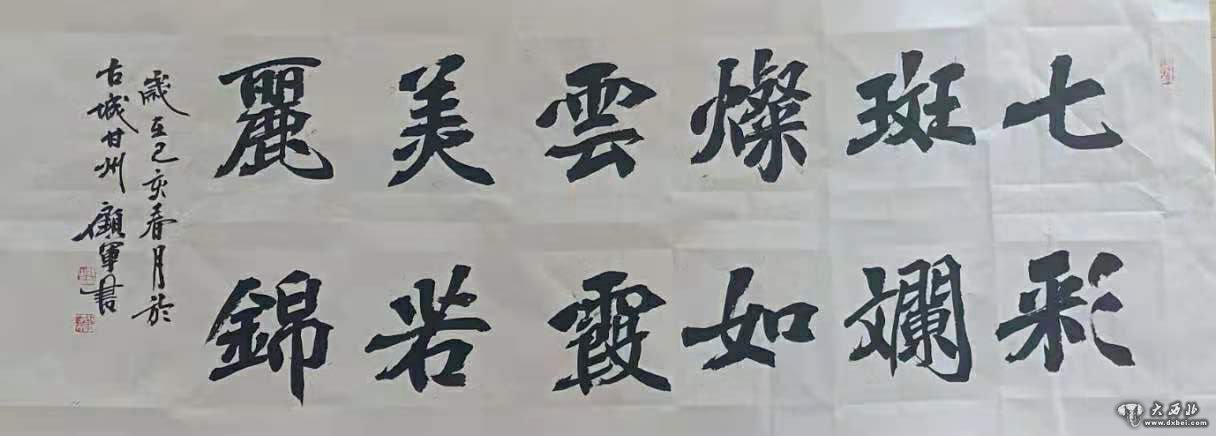 七彩
斑斕
燦如
雲霞
美若
麗錦
歲在己亥春月於
古城甘州 顧軍書
大西北
www.dxbei.com